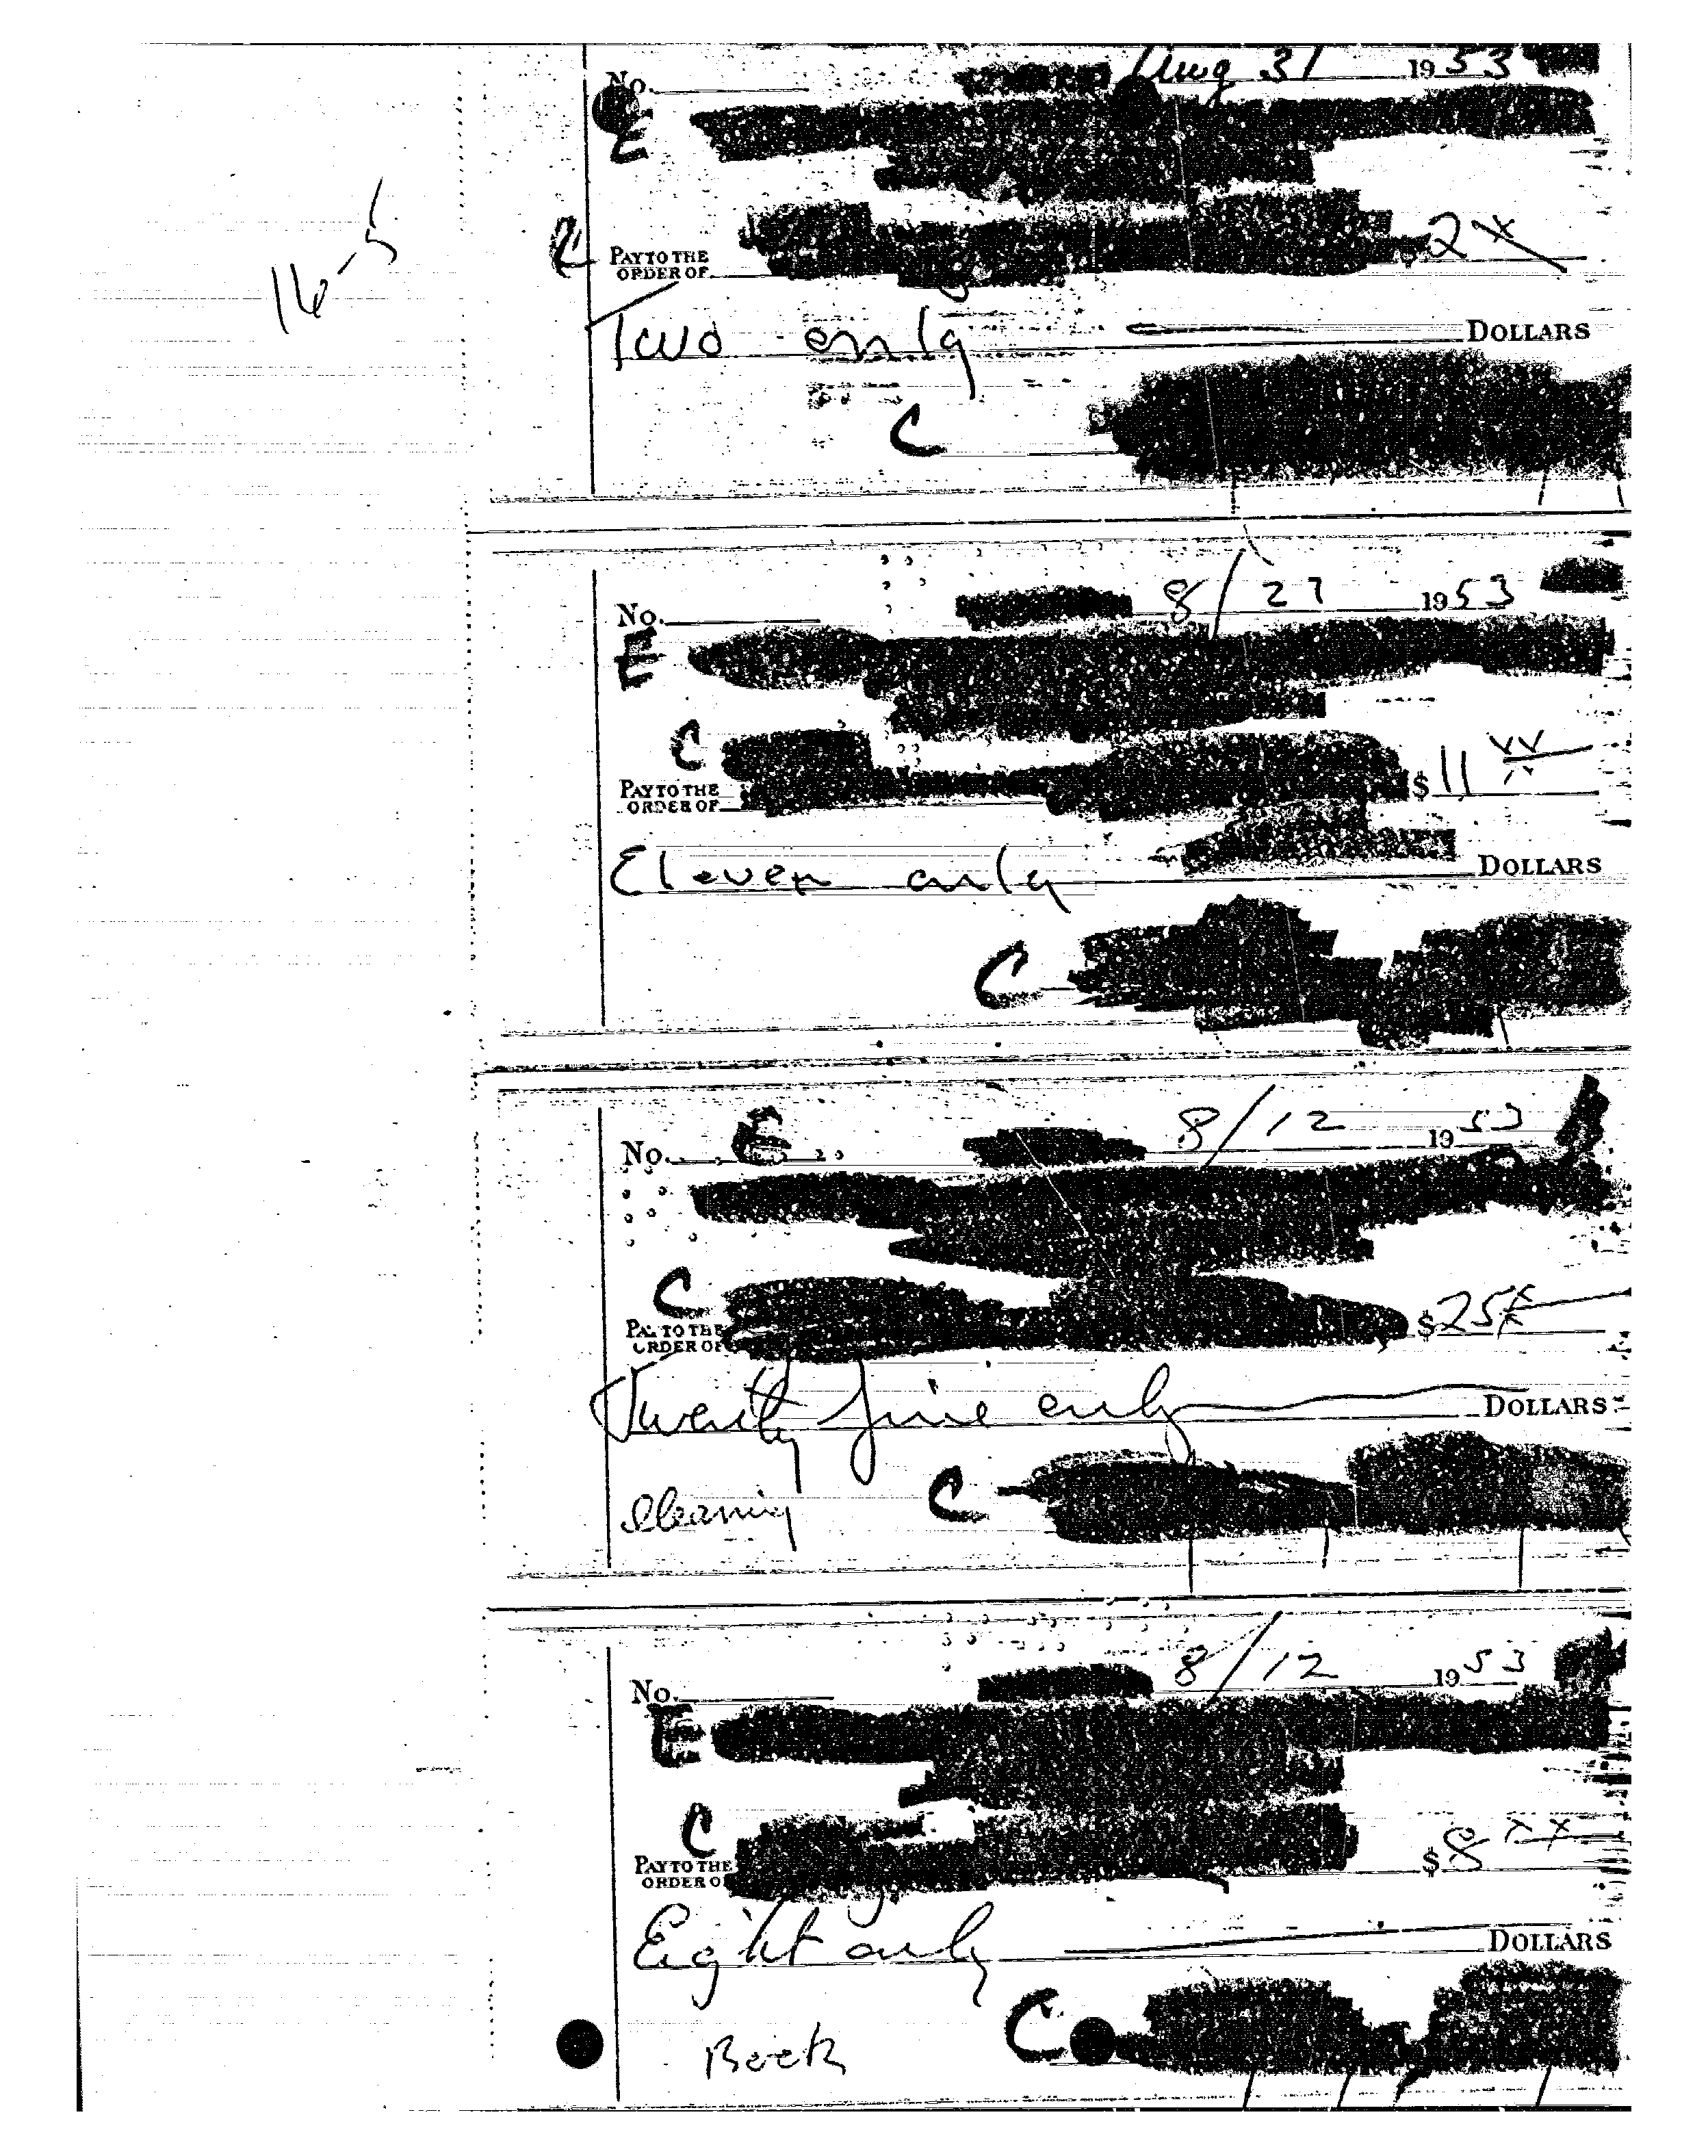 16-5
No. Aug 31 1953
E
C
PAY TO THE
ORDER OF $2
Two only DOLLARS
C
No. 8/27 1953
E
C
PAY TO THE
ORDER OF $11
Eleven only DOLLARS
C
No. E 8/12 1953
C
PAY TO THE
ORDER OF $25
Twenty five only DOLLARS
Cleaning C
No. 8/12 1953
E
C
PAY TO THE
ORDER OF $8 xx
Eight only DOLLARS
C